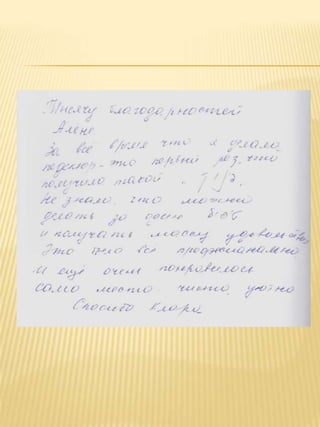 Тысячу благодарностей
Алене.
За всё время что я делаю
педекюр - это первый раз, что
получила такой
Не знала, что можно
делать за
и получать массу удовольствия
Это было всё профессианально
И ещё очень понравилось
само место. чисто, уютно
Спасибо Клара